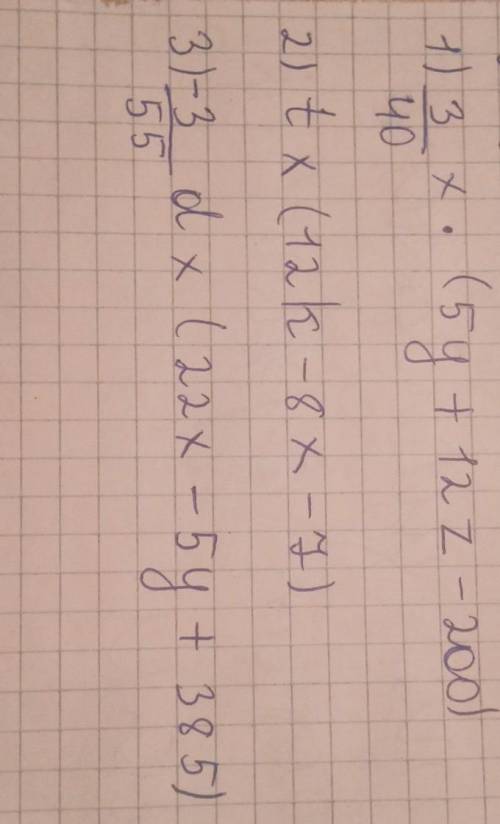 1) 3/40 x · (5y + 12z - 200)
2) t x (12k - 8x - 7)
3) -3/55 d x (22x - 5y + 385)